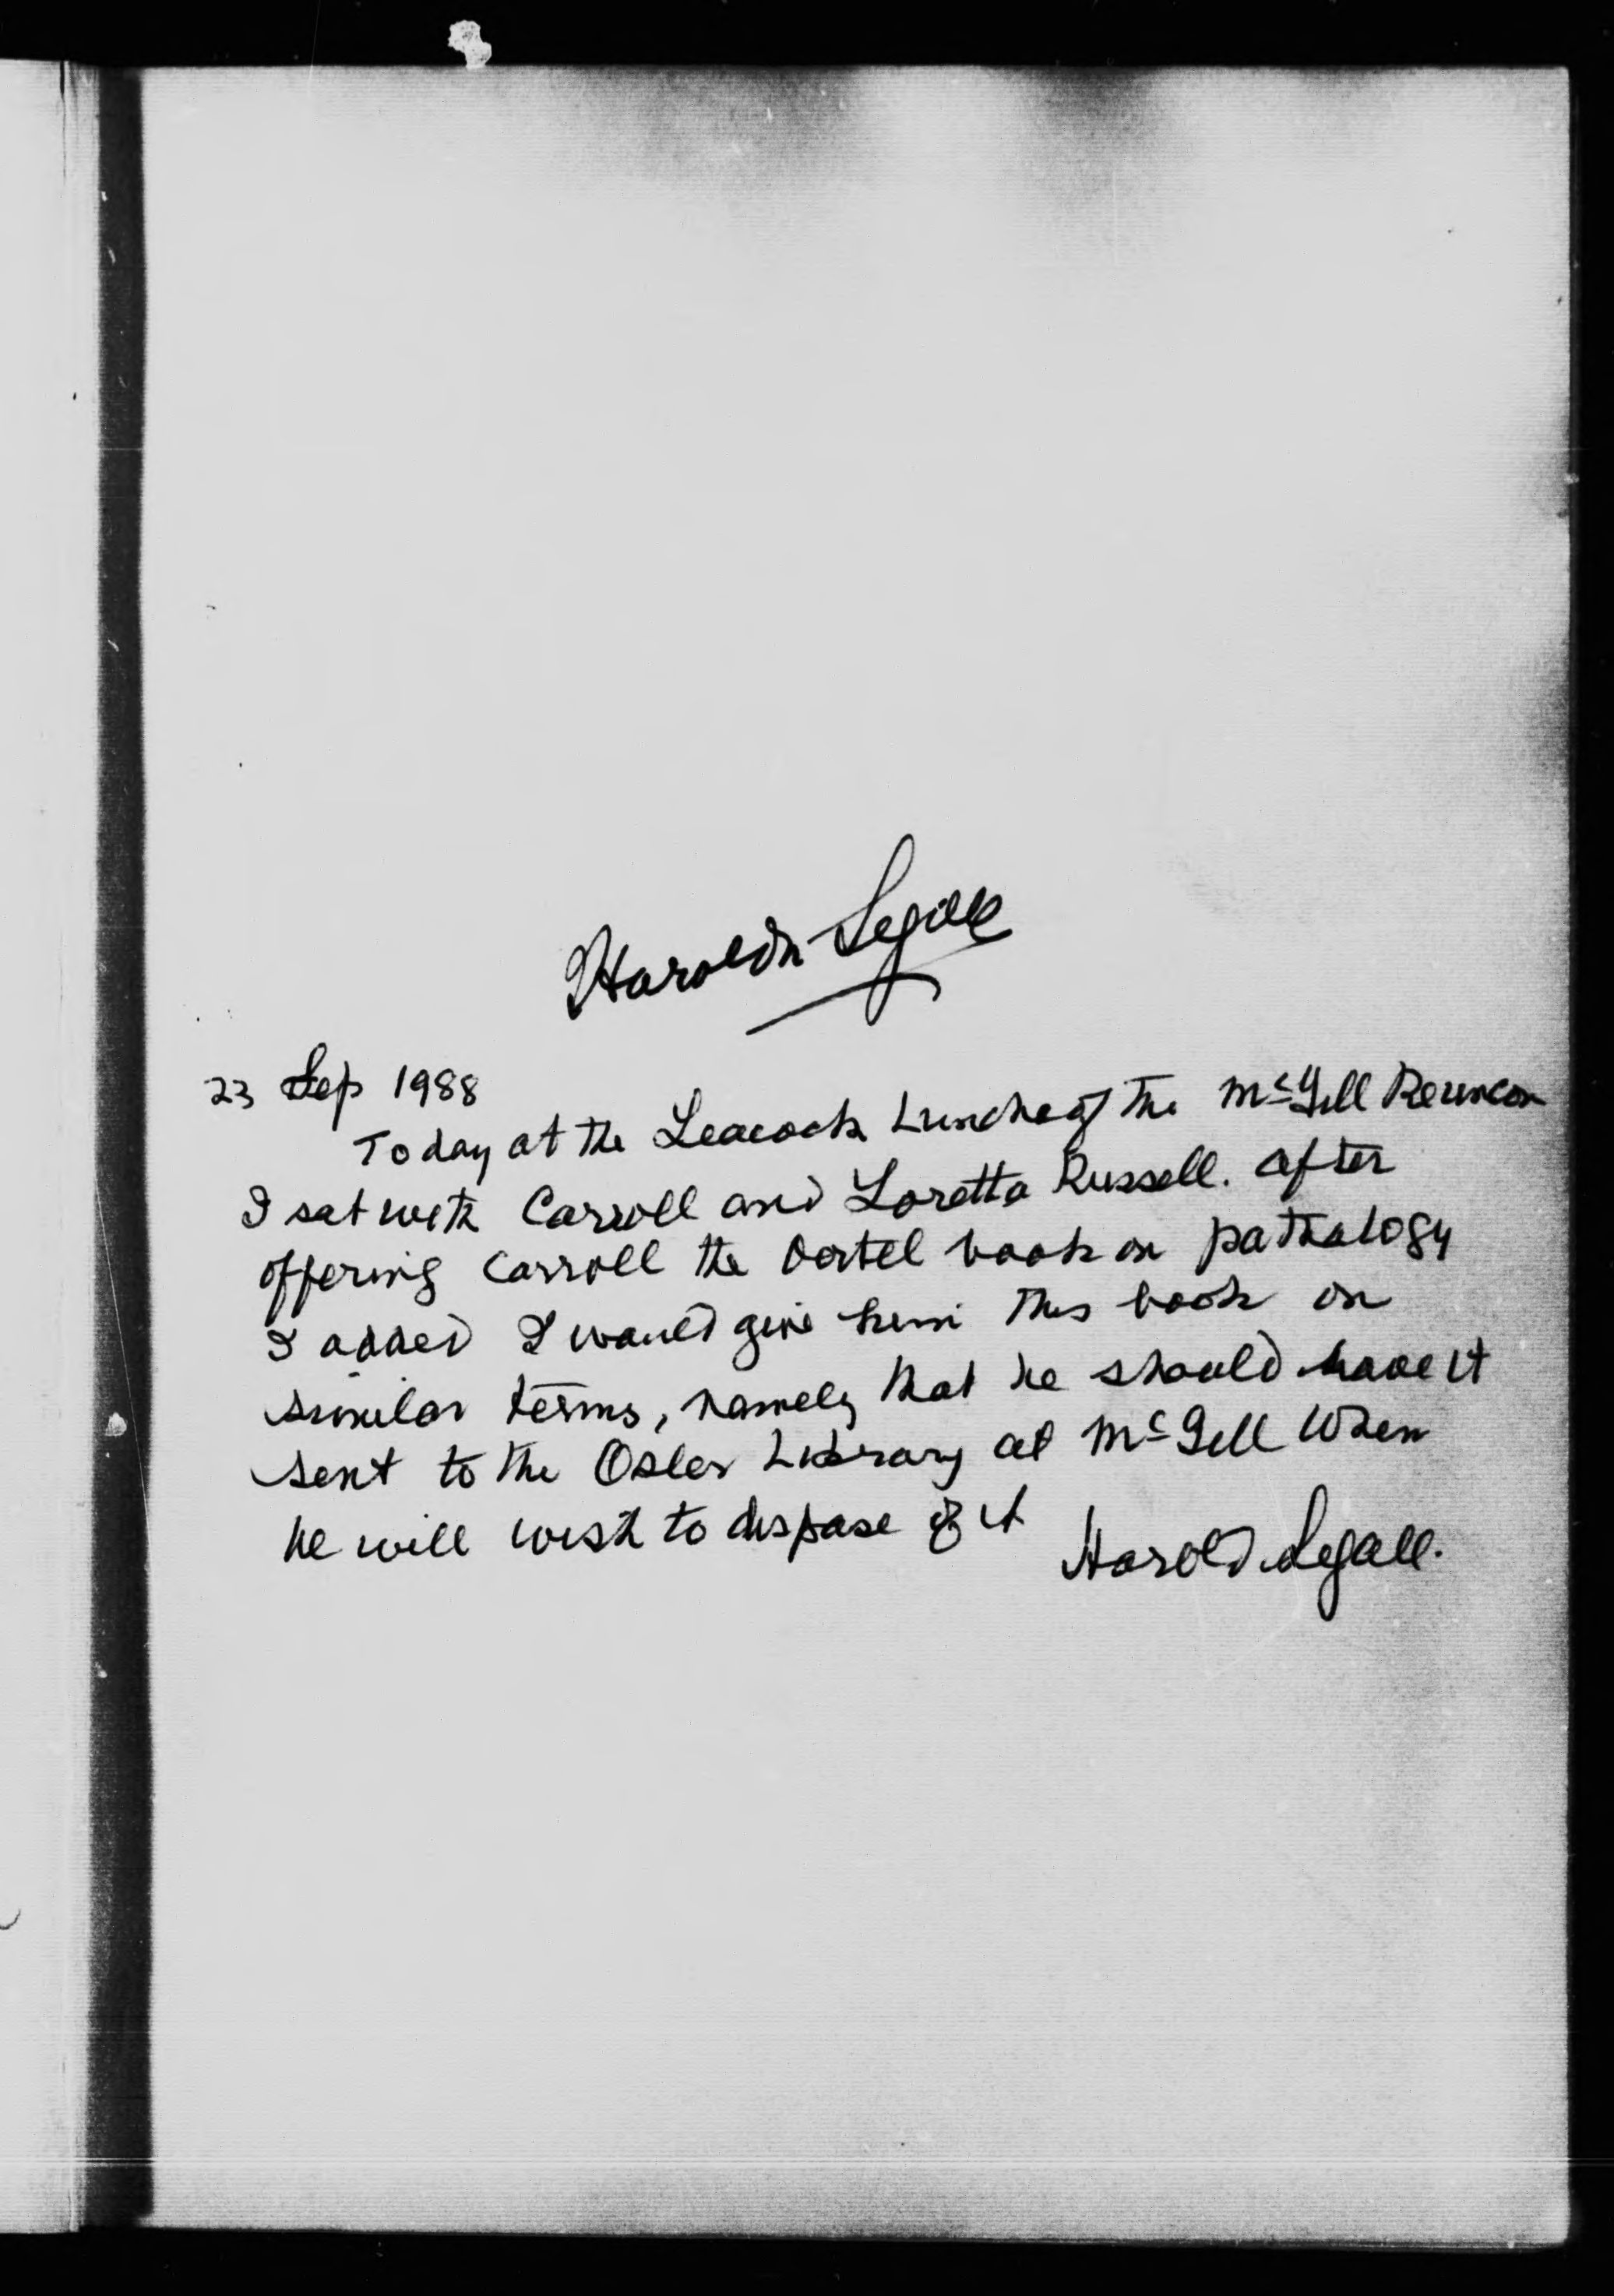 Harold N Segall
23 Sep 1988
Today at the Leacock Lunch of the McGill Reunion
I sat with Carroll and Loretta Russell. After
offering Carroll the Oertel book on pathology
I added I would give him this book on
similar terms, namely that he should have it
sent to the Osler Library at McGill when
he will wish to dispose of it
Harold Segall.